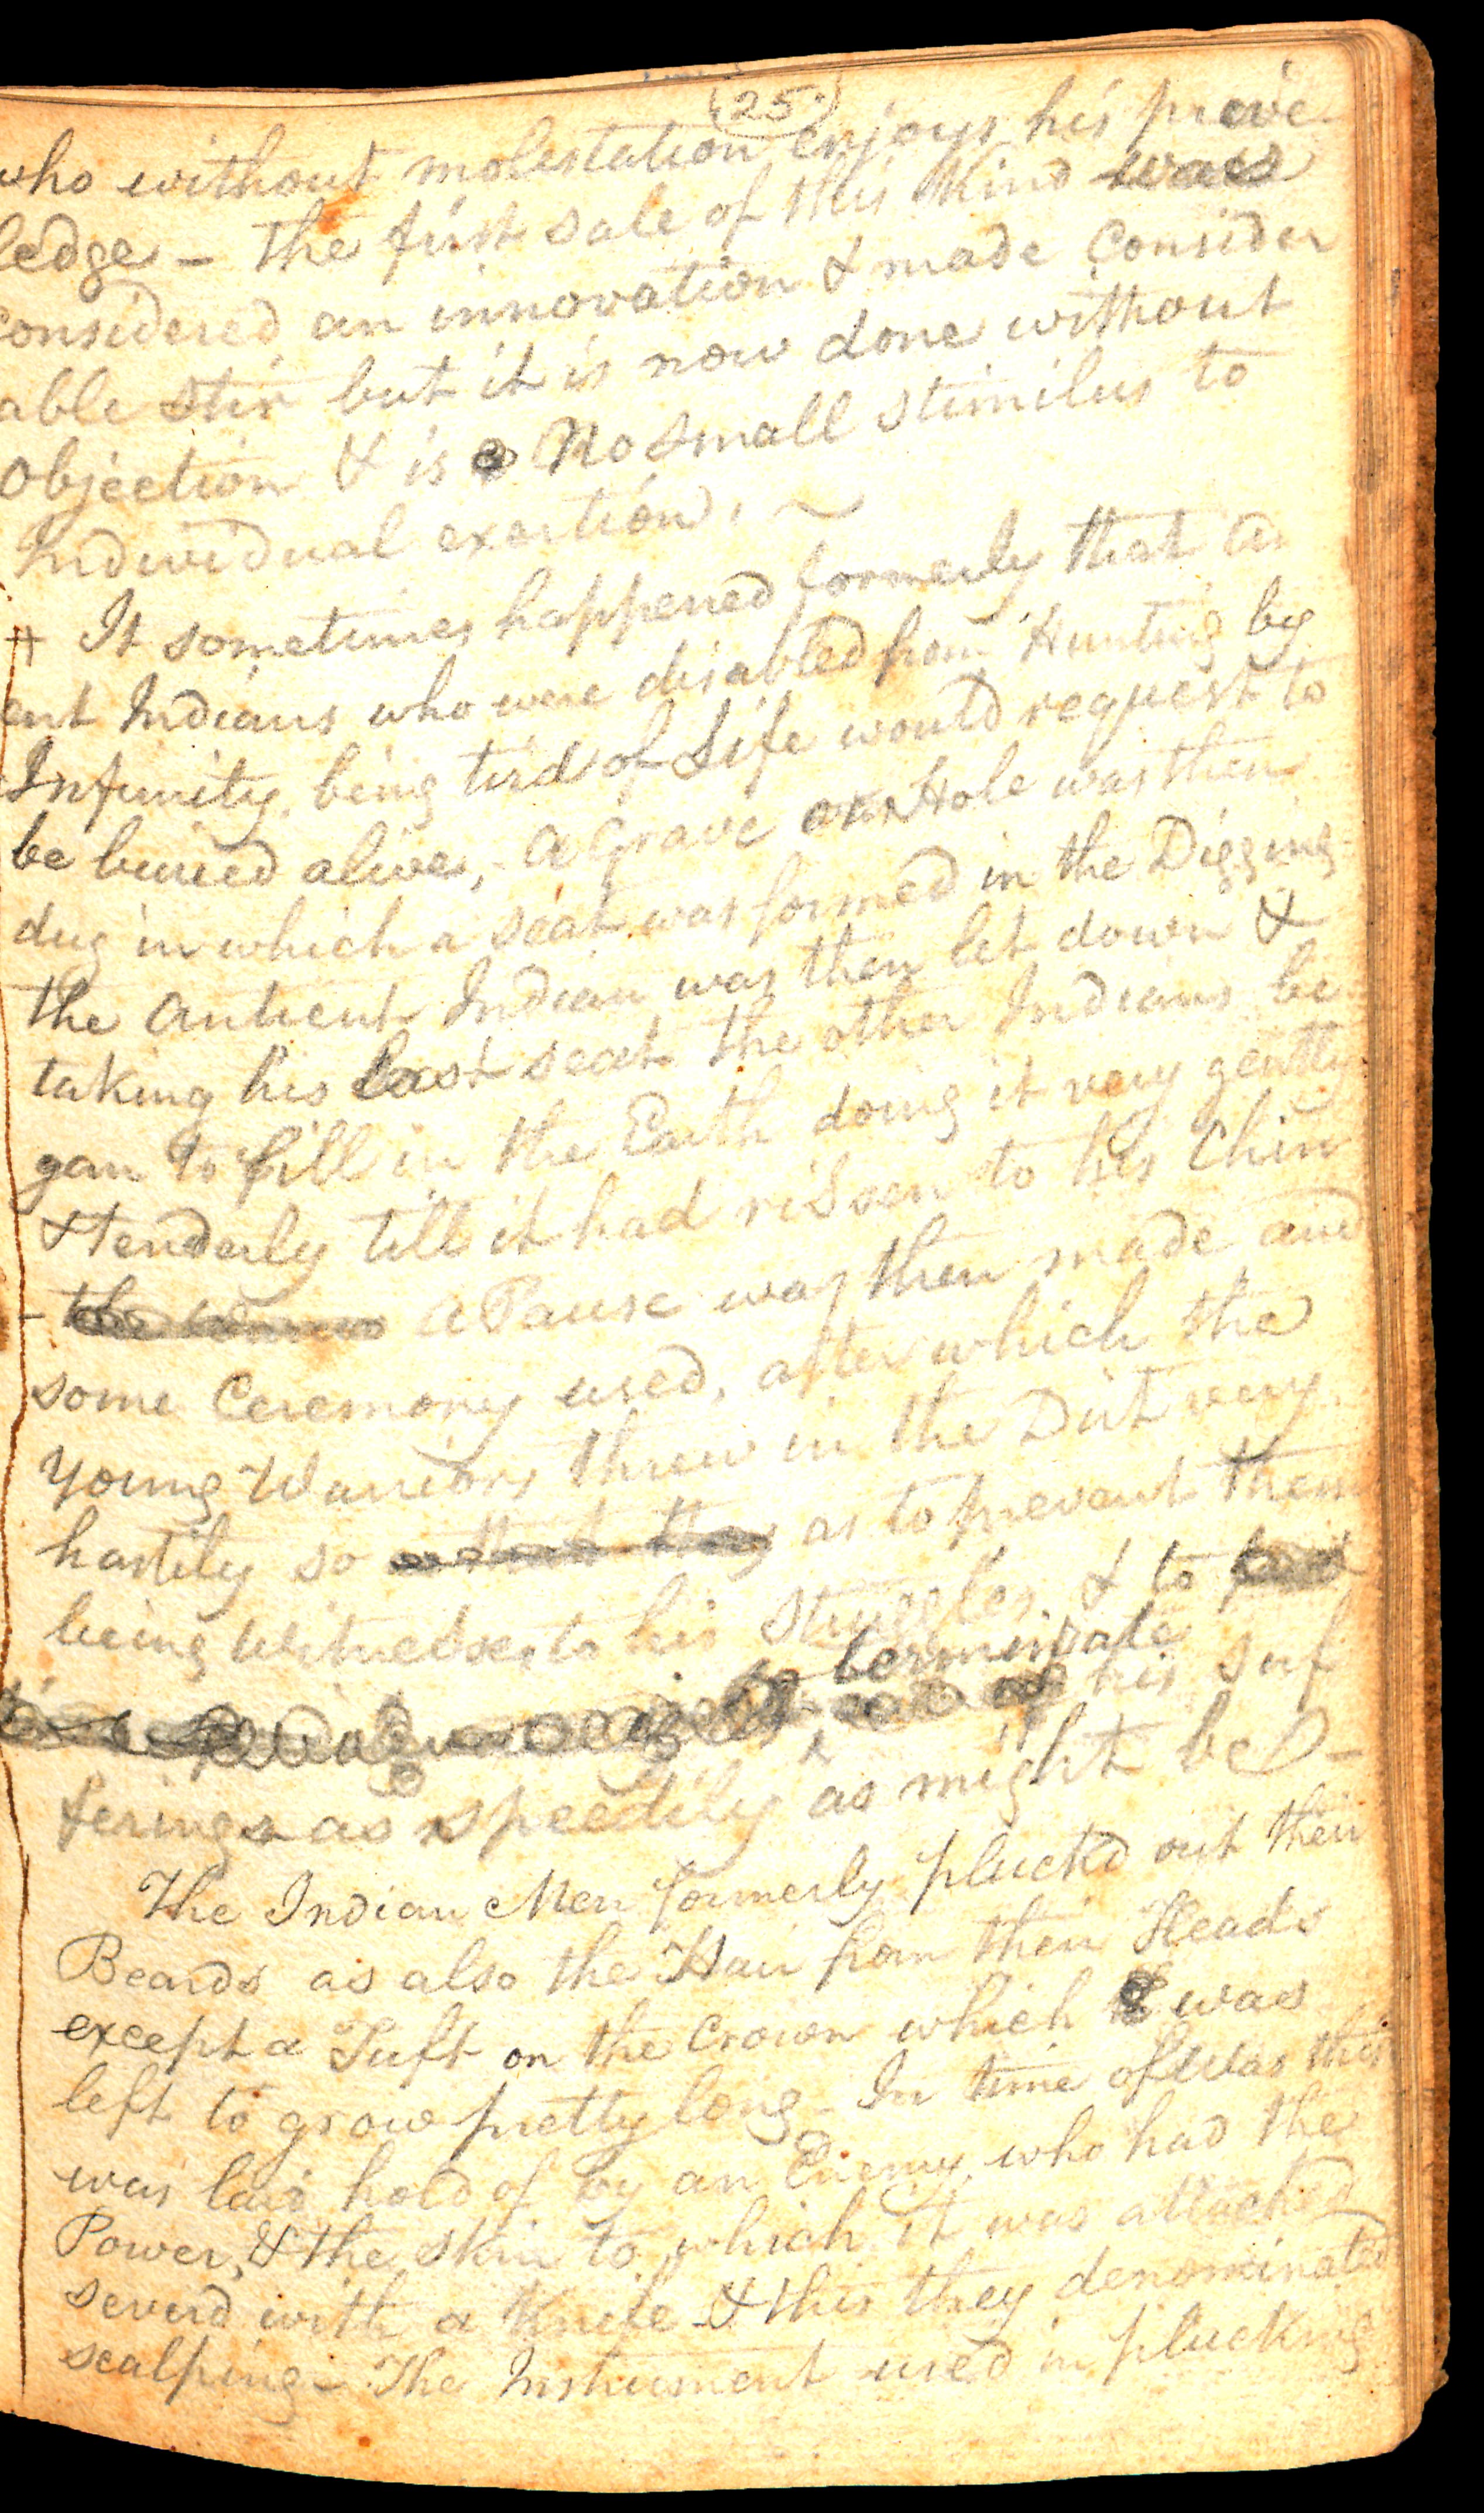 (25)
who without molestation enjoys his prive
ledge - the first sale of this kind was
considered an innovation & made Consider
able stir but it is now done without
Objection & is No small stimilus to
Individual exertion. ~
+ It sometimes happened formerly that an
ent Indians who were disabled from Hunting by
Infirmity, being tird of Life would request to
be buried alive, - a Grave or Hole was then
dug in which a seat was formed in the Digging
the antient Indian was then let down &
taking his last seat the other Indians be
gan to fill in the Earth doing it very gently
& tenderly till it had rissen to his Chin
- the a Pause was then made and
some Ceremony used, after which the
young Warriors threw in the Dirt very
hastily so that they as to prevent them
being Witnesses to his struggles & to
terminate
his suf
ferings as speedily as might be -
The Indian Men formerly pluck'd out their
Beards as also the Hair from their Heads
except a Tuft on the Crown which was
left to grow pretty long - In time of War this
was laid hold of by an Enemy who had the
Power, & the skin to which it was attached
severd with a Knife & this they denominated
scalping - The Instrument used in plucking